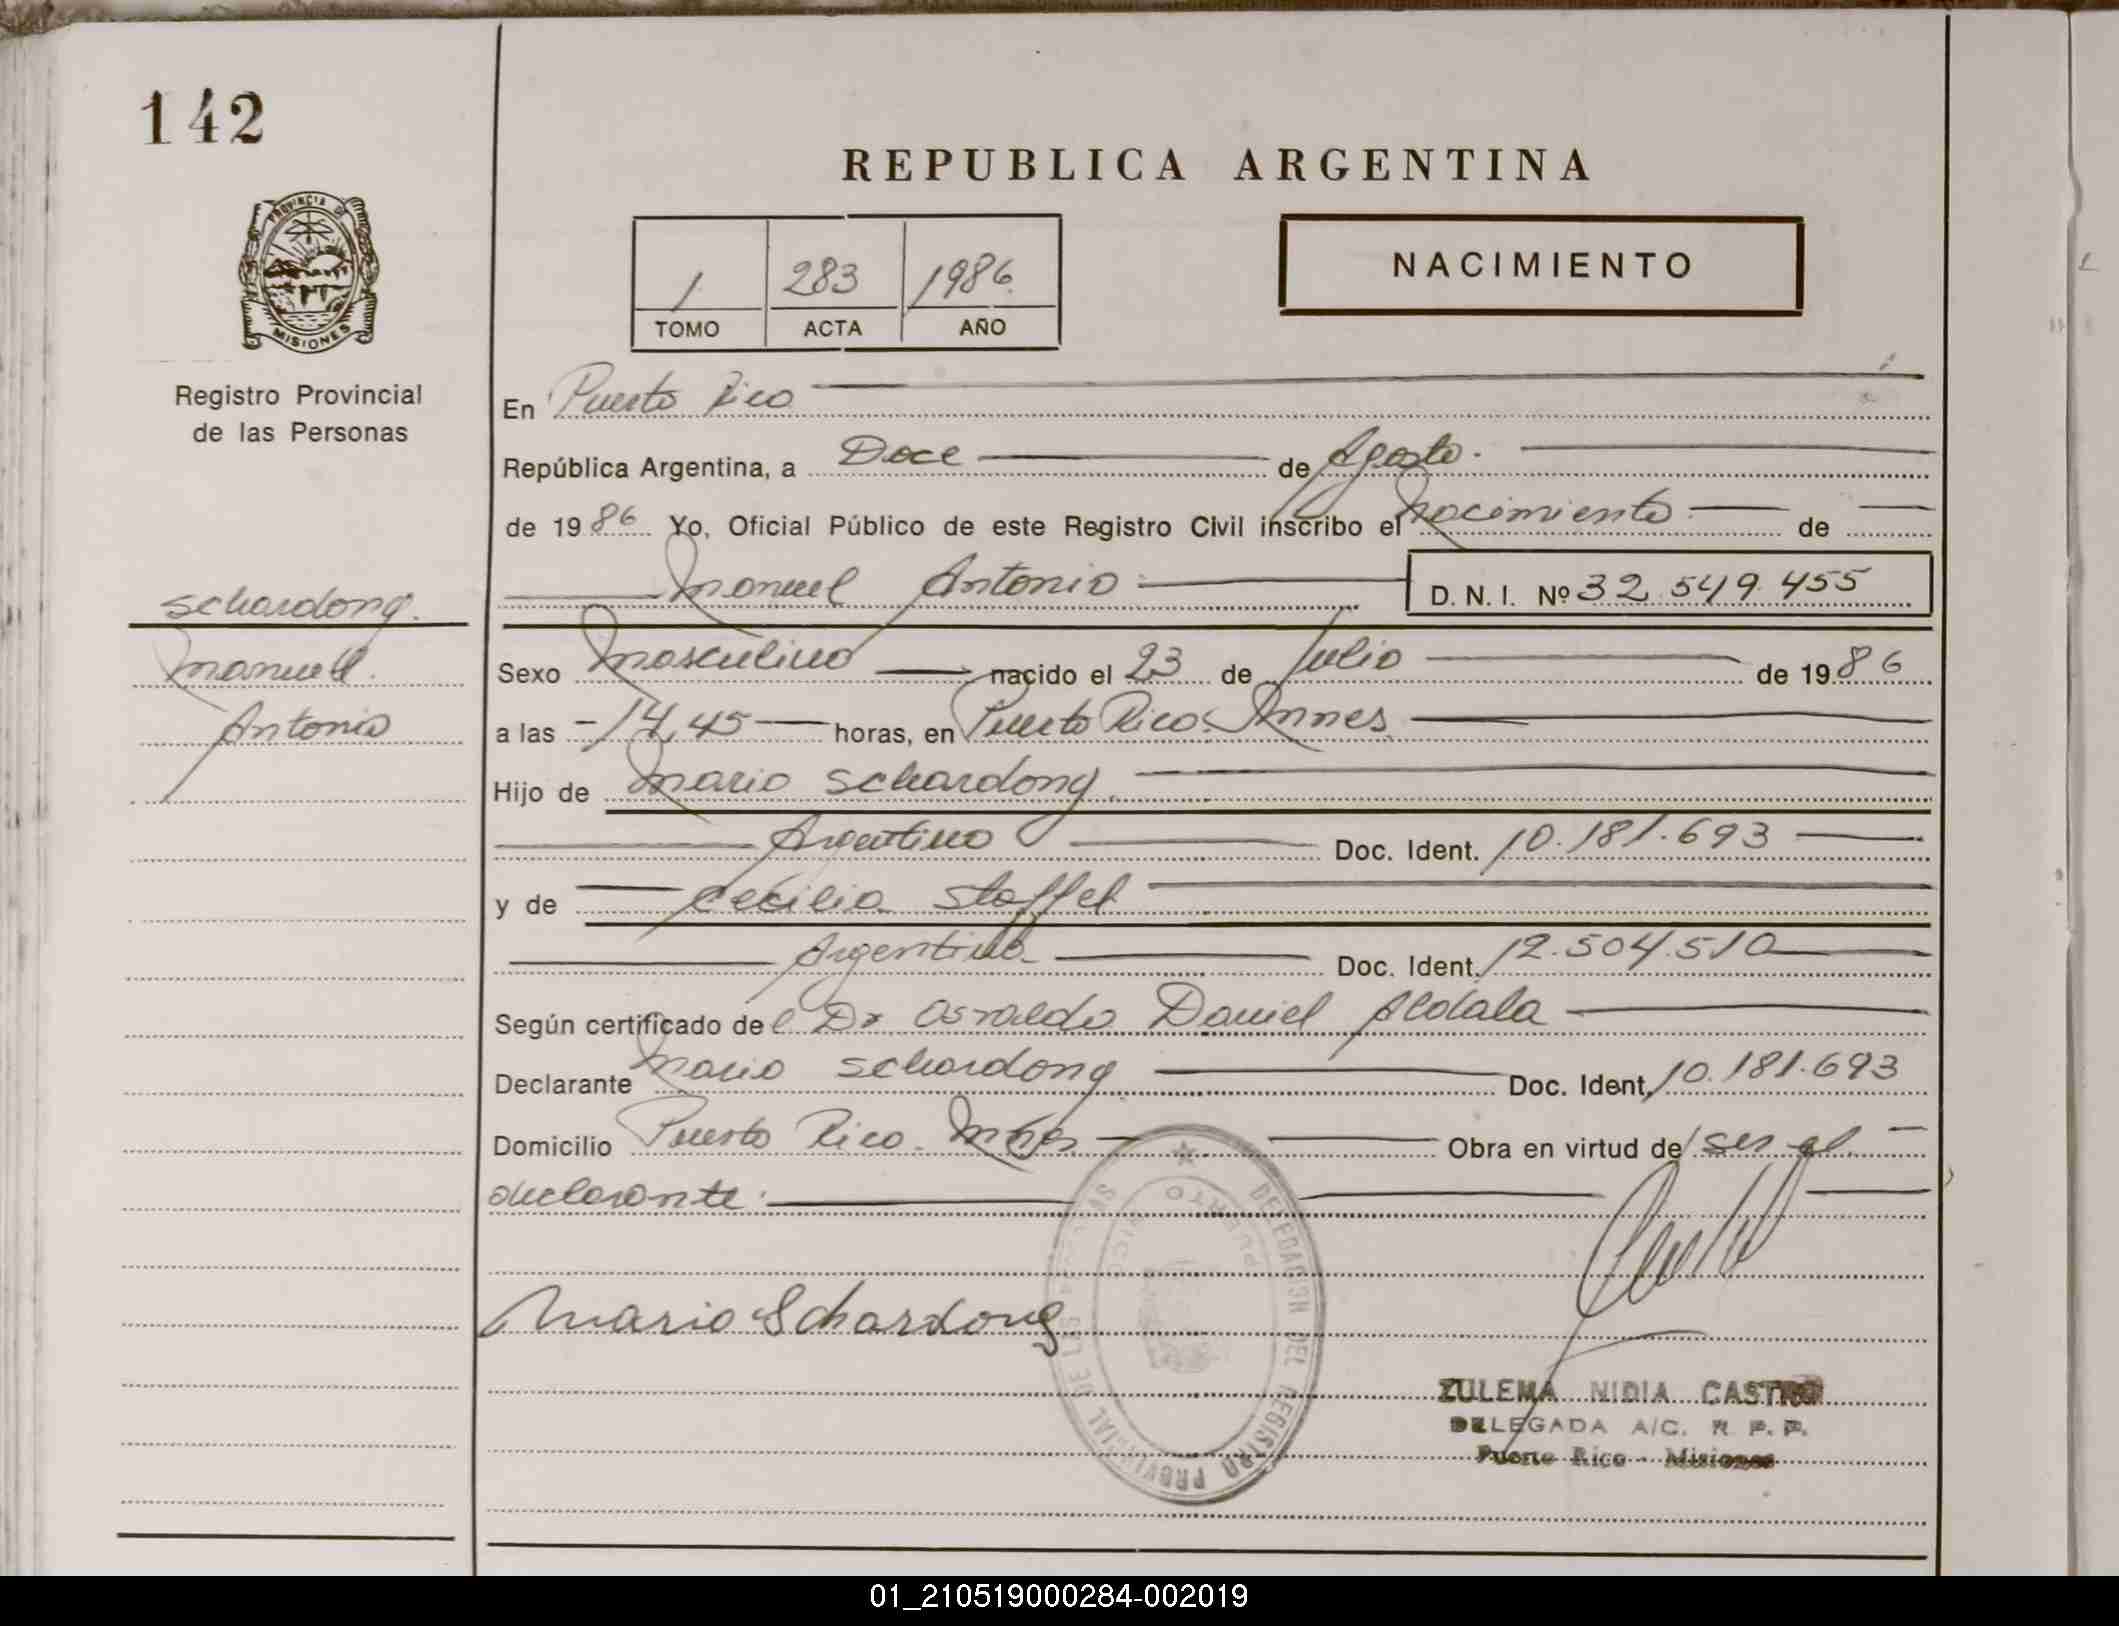 142
REPUBLICA ARGENTINA
PROVINCIA DE
MISIONES
1 283 1986
TOMO ACTA AÑO
NACIMIENTO
Registro Provincial
de las Personas
En Puerto Rico
República Argentina, a Doce de Agosto.
de 1986 Yo, Oficial Público de este Registro Civil inscribo el Nacimiento de
Manuel Antonio D. N. I. Nº 32.549.455
Schardong.
Manuel.
Antonio
Sexo Masculino nacido el 23 de Julio de 1986
a las -14,45 horas, en Puerto Rico.
Hijo de Mario Schardong
Argentino Doc. Ident. 10.181.693
y de Cecilia Staffel
Argentina Doc. Ident. 12.504.510
Según certificado del Dr Osvaldo Daniel
Declarante Mario Schardong Doc. Ident. 10.181.693
Domicilio Puerto Rico. Mnes Obra en virtud de ser el
declarante.
DELEGACION DEL REGISTRO PROVINCIAL DE LAS
PUERTO RICO
Mario Schardong
ZULEMA NIDIA CASTRO
DELEGADA A/C. R. P. P.
Puerto Rico - Misiones
01_210519000284-002019